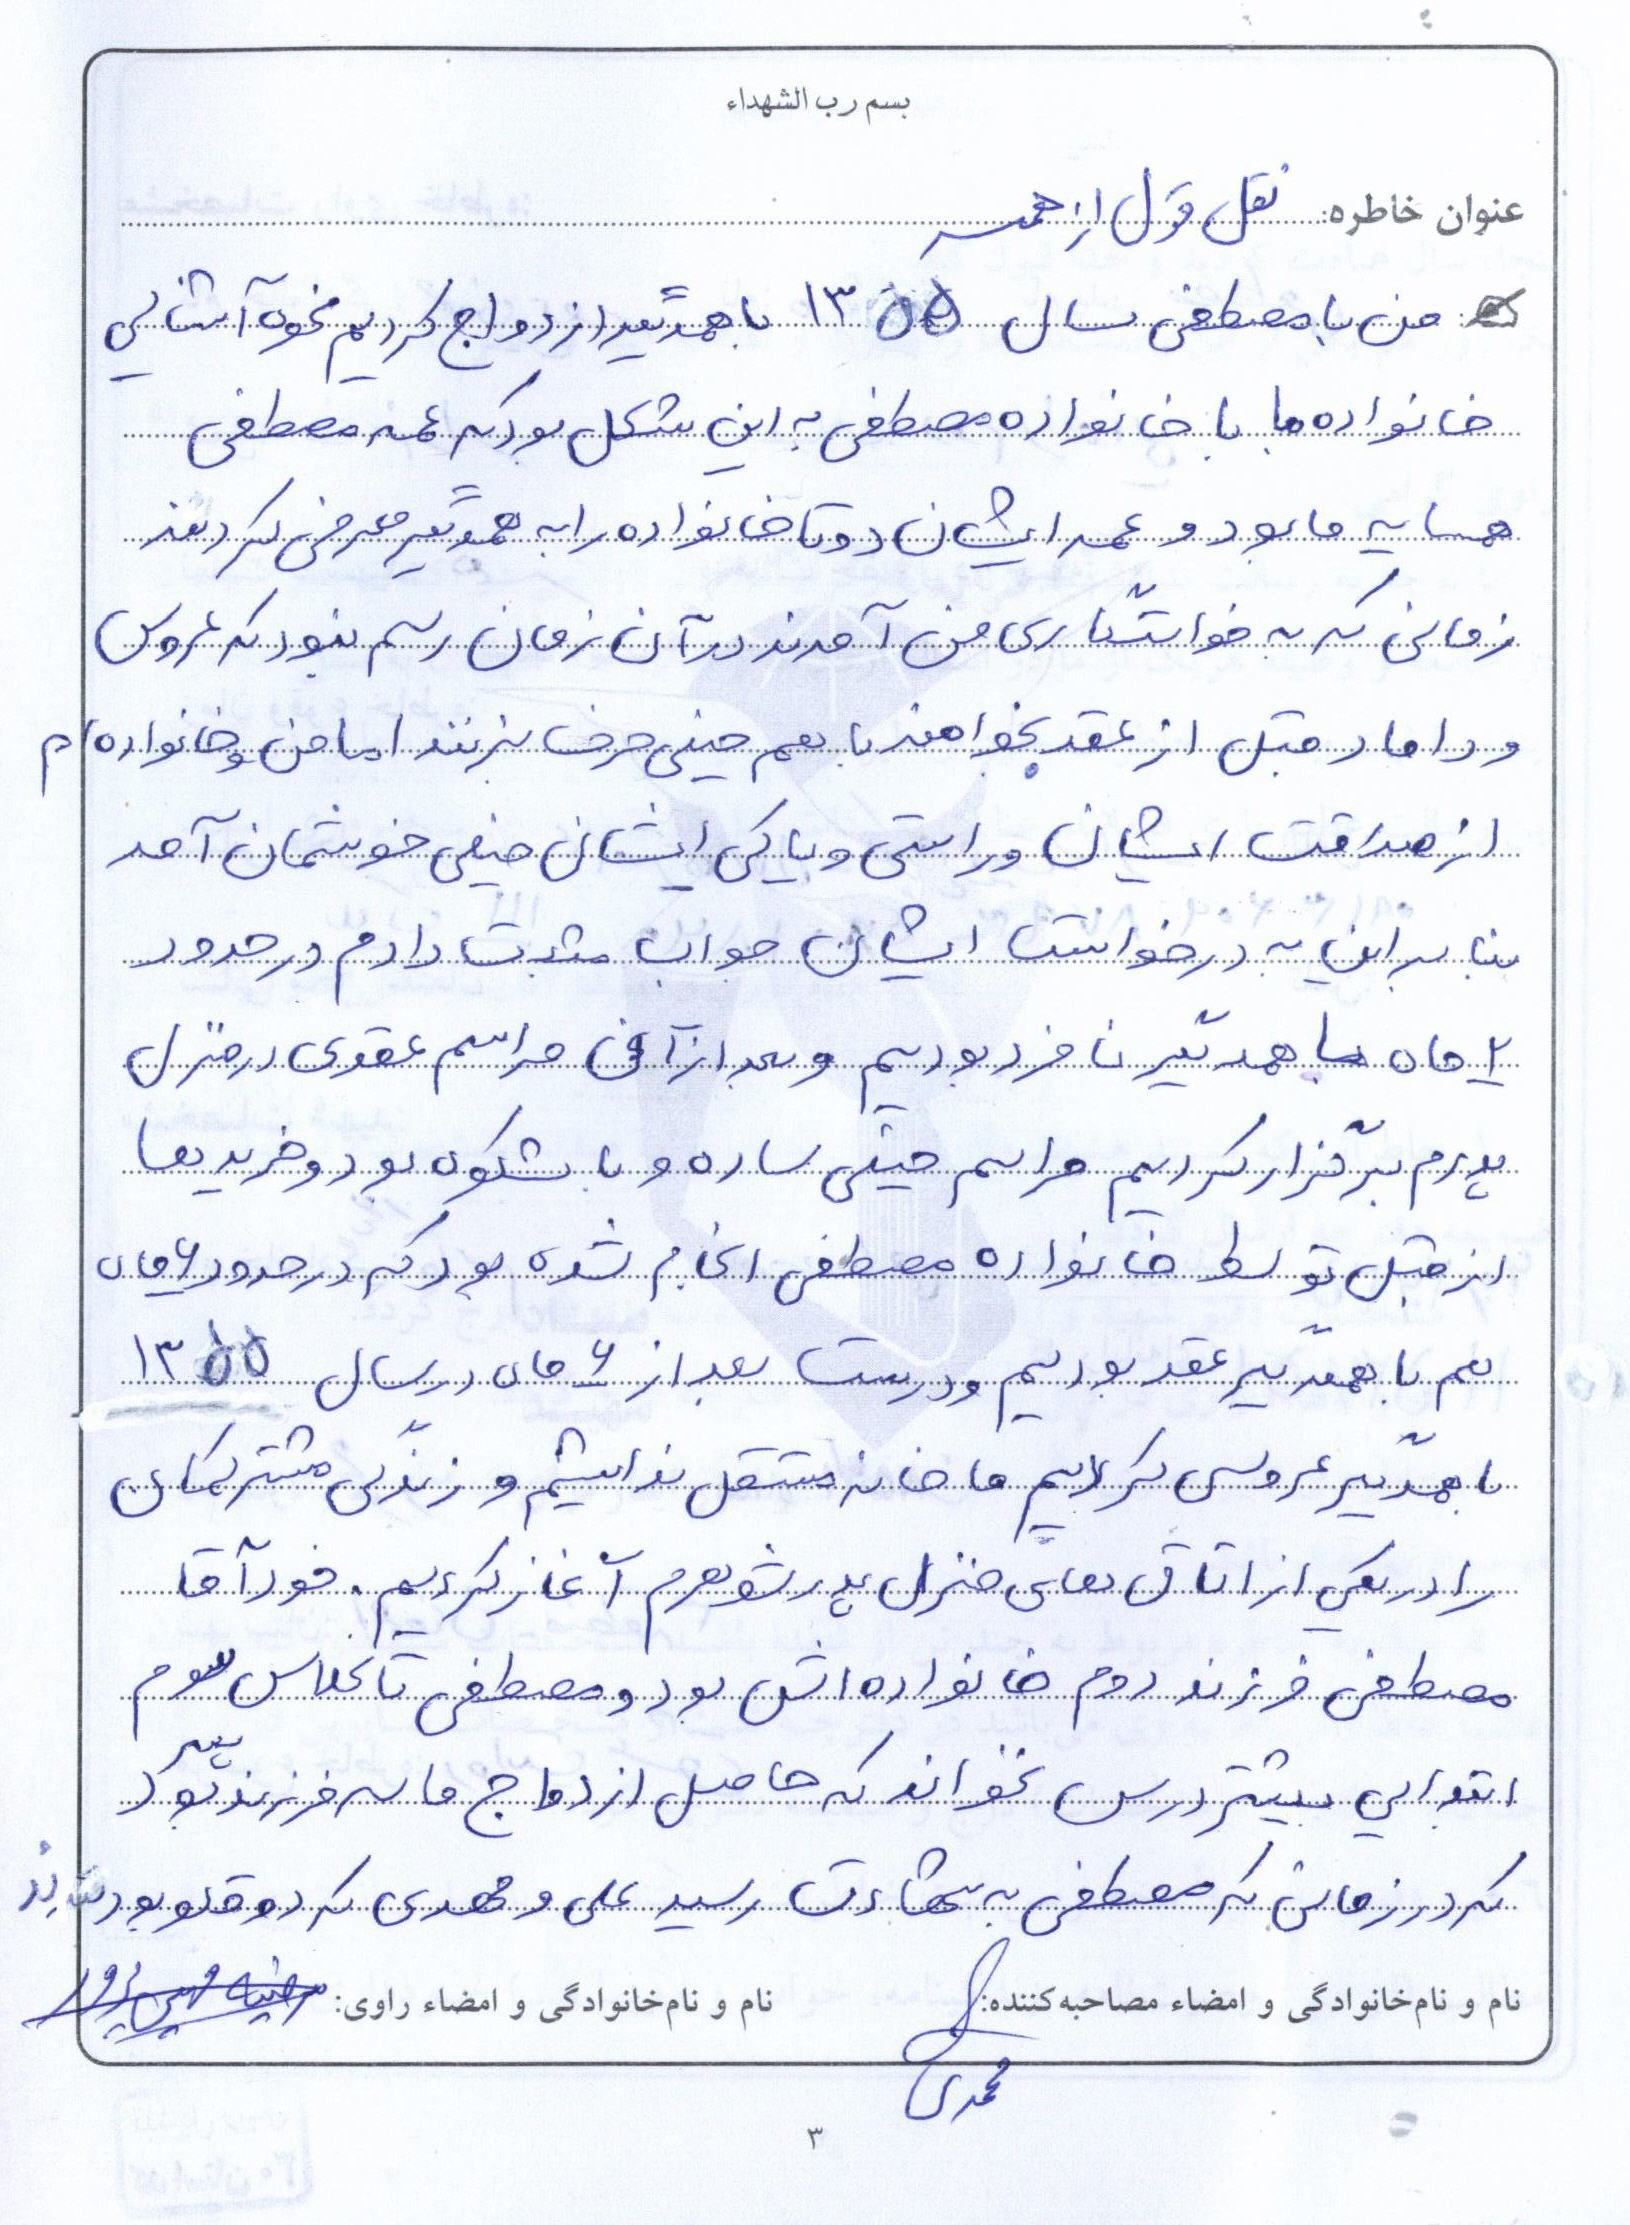 بسم رب الشهداء
عنوان خاطره: نقل قول از همسر
من با مصطفی سال ۱۳۵۵ با همدیگر ازدواج کردیم نحوه آشنایی
خانواده ما با خانواده مصطفی به این شکل بود که عمه مصطفی
همسایه ما بود و عمه ایشان دوتا خانواده را به همدیگر معرفی کردند
زمانی که به خواستگاری من آمدند در آن زمان رسم نبود که عروس
و داماد قبل از عقد بخواهند با هم خیلی حرف بزنند اما من و خانواده ام
از صداقت ایشان و راستی و پاکی ایشان خیلی خوشمان آمد
بنابراین به درخواست ایشان جواب مثبت دادم در حدود
۲ ماه با همدیگر نامزد بودیم و بعد از آن مراسم عقدی در منزل
پدرم برگزار کردیم مراسم خیلی ساده و با شکوه بود و خرید ها
از قبل توسط خانواده مصطفی انجام شده بود که در حدود ۶ ماه
هم با همدیگر عقد بودیم و درست بعد از ۶ ماه در سال ۱۳۵۵
با همدیگر عروسی کردیم ما خانه مستقل نداشتیم و زندگی مشترکمان
را در یکی از اتاق های منزل پدر شوهرم آغاز کردیم . خود آقا
مصطفی فرزند دوم خانواده اش بود و مصطفی تا کلاس سوم
ابتدایی بیشتر درس نخواند که حاصل ازدواج ما سه فرزند پسر بود
که در زمانی که مصطفی به شهادت رسید علی و مهدی که دوقلو بودند
نام و نام‌خانوادگی و امضاء مصاحبه‌کننده: محمدی
نام و نام‌خانوادگی و امضاء راوی:
۳